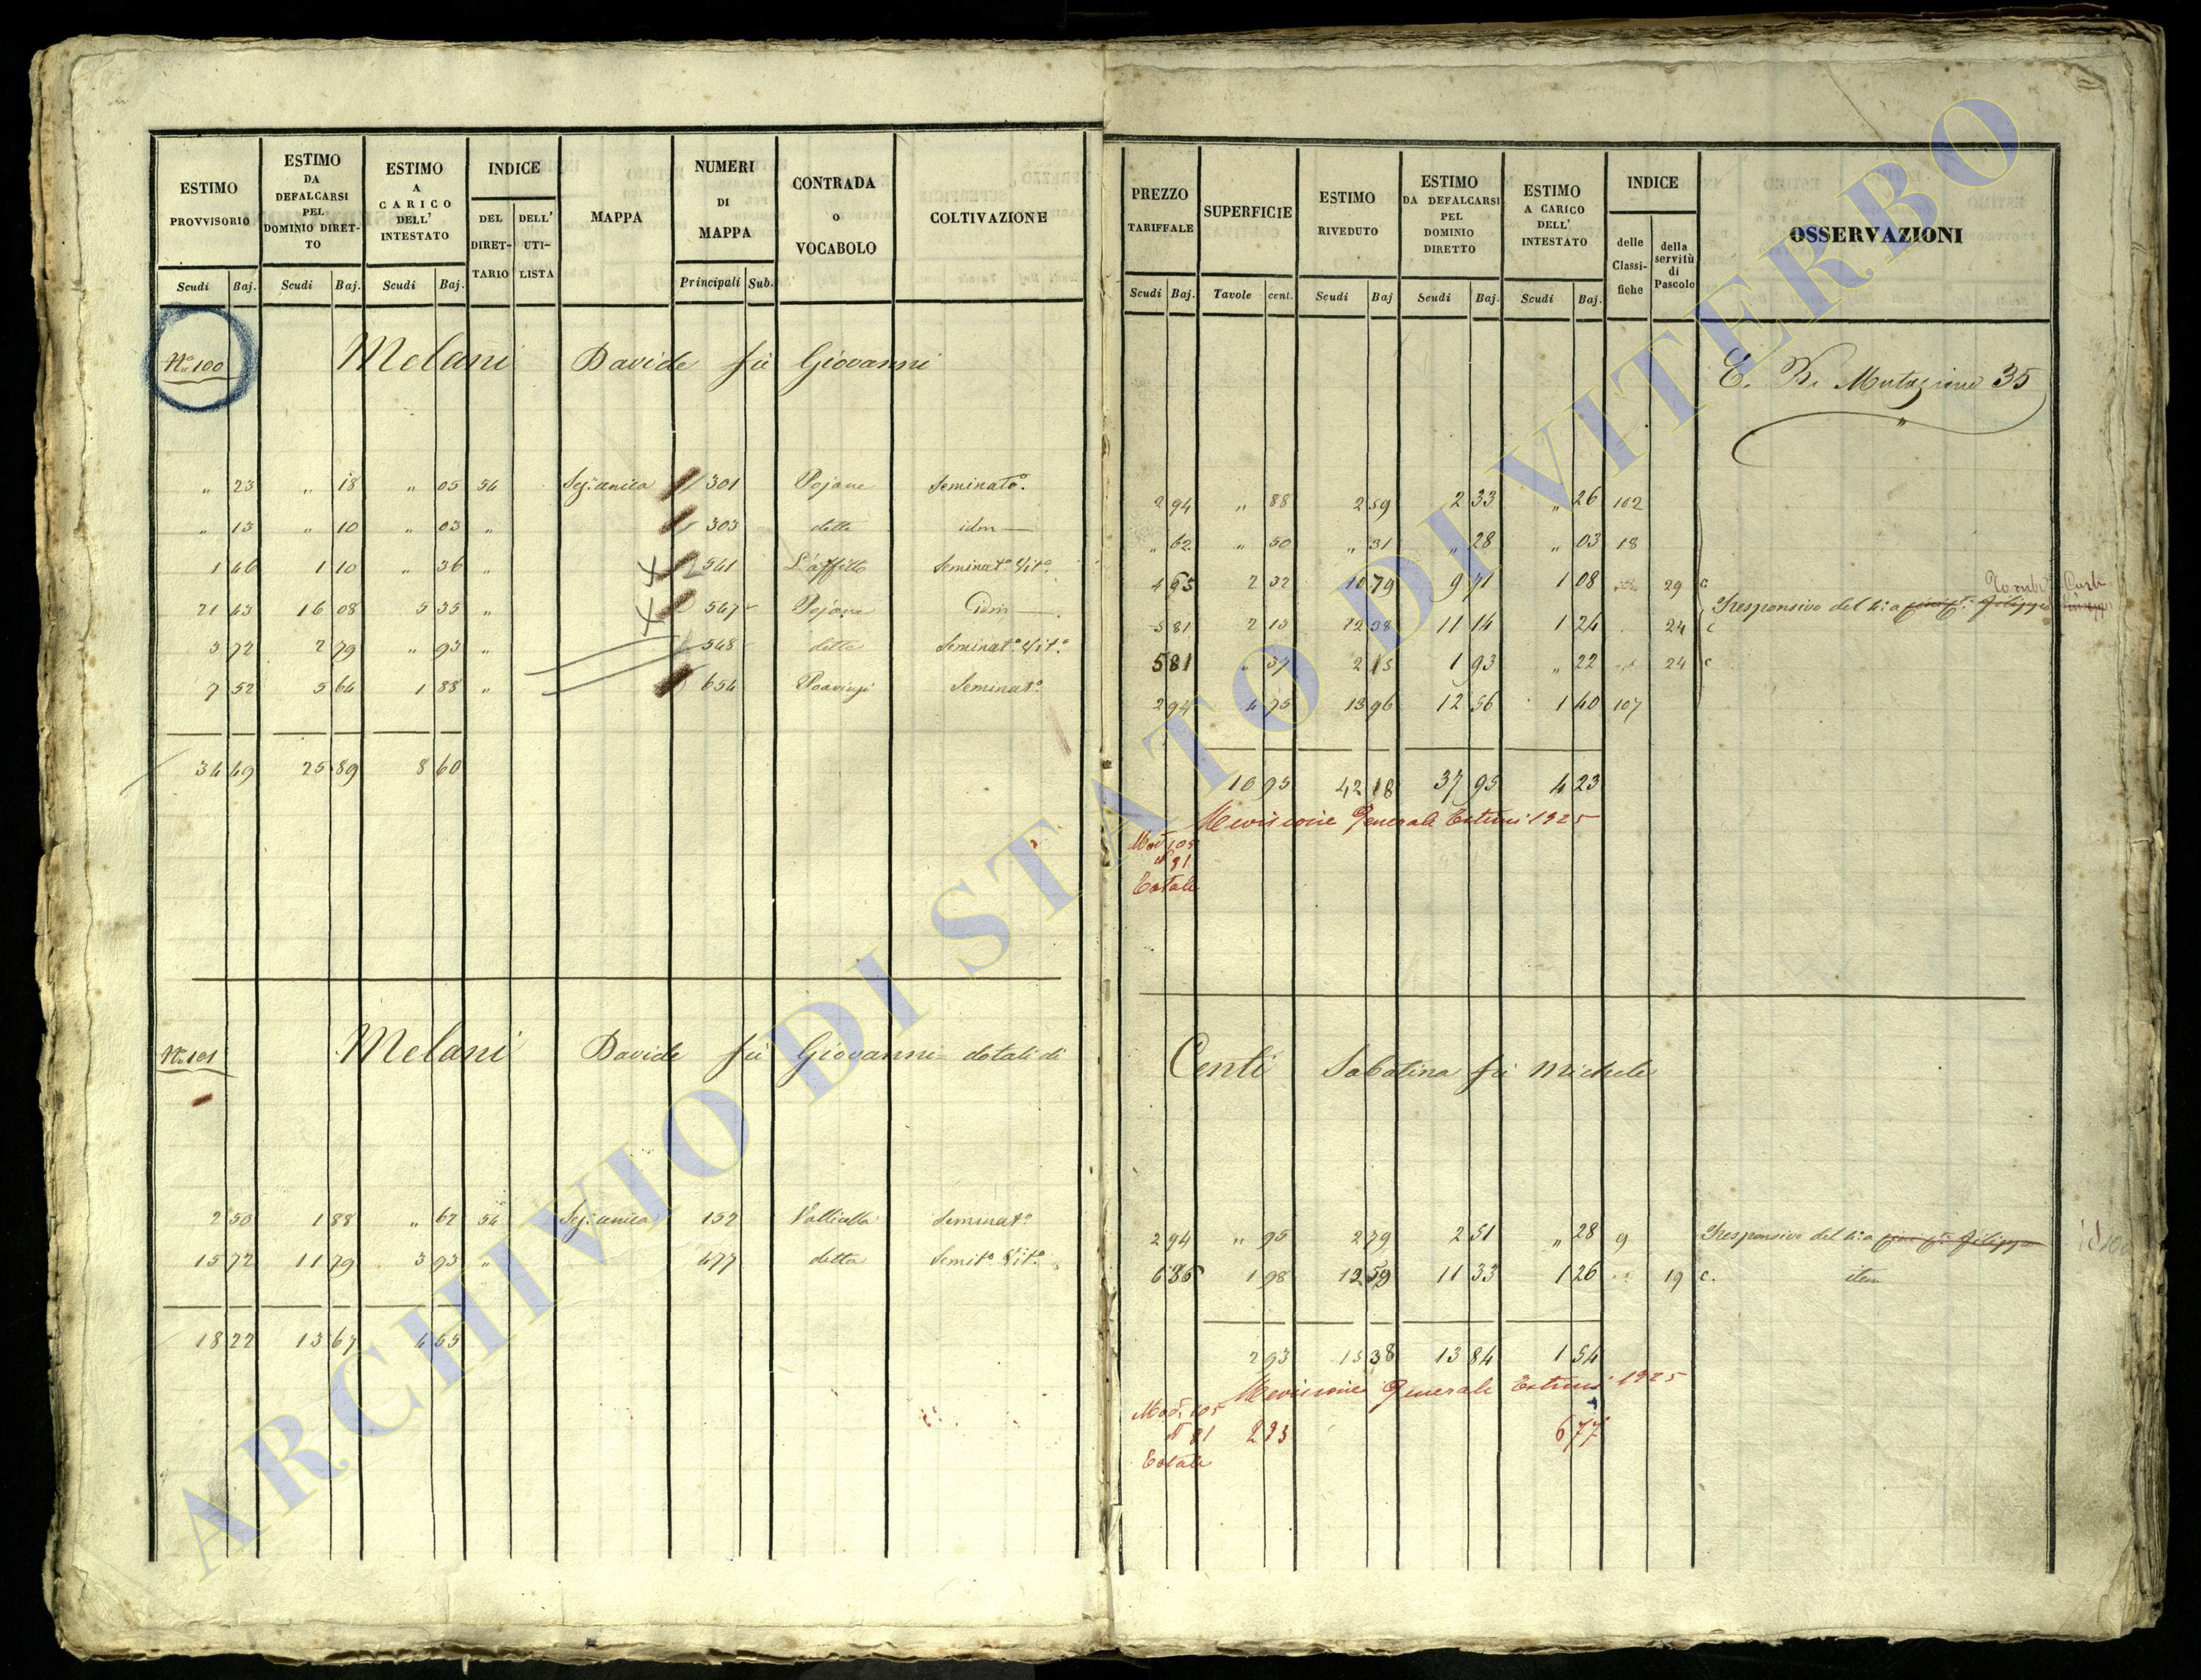 ESTIMO PROVVISORIO
ESTIMO DA DEFALCARSI PEL DOMINIO DIRET-TO
ESTIMO A CARICO DELL' INTESTATO
INDICE
DEL DIRET-TARIO
DELL' UTI-LISTA
MAPPA
NUMERI DI MAPPA
CONTRADA o VOCABOLO
COLTIVAZIONE
Scudi Baj. Scudi Baj. Scudi Baj. Principali Sub.
PREZZO TARIFFALE
SUPERFICIE
ESTIMO RIVEDUTO
ESTIMO DA DEFALCARSI PEL DOMINIO DIRETTO
ESTIMO A CARICO DELL' INTESTATO
INDICE
delle Classi-fiche
della servitù di Pascolo
OSSERVAZIONI
Scudi Baj. Tavole cent. Scudi Baj Scudi Baj. Scudi Baj.
No. 100 Melani Davide fù Giovanni
Mutazione 35
" 23 " 18 " 05 54 301 Pojane Seminato.
2 94 " 88 2 59 2 33 " 26 102
" 13 " 10 " 03 " 303 dette idm
" 62 " 50 " 31 " 28 " 03 18
1 46 1 10 " 36 " 541 L'affitto Seminato. Vito.
4 65 2 32 10 79 9 71 1 08 29 c
21 43 16 08 5 35 " 547 Pojane idm
Responsivo del 4: a
5 81 2 13 12 38 11 14 1 24 24 c
3 72 2 79 " 93 " 548 dette Seminato. Vito.
5 81 " 37 2 15 1 93 " 22 24 c
7 52 5 64 1 88 " 654 Seminato.
2 94 4 75 13 96 12 56 1 40 107
34 49 25 89 8 60
10 95 42 18 37 95 4 23
Revisione Generale Estimi 1925
Mod 105
N 91
Totale
No. 101 Melani Davide fù Giovanni dotali di
Centi Sabatina fù Michele
2 50 1 88 " 62 54 152 Vallicella Seminato.
2 94 " 95 2 79 2 51 " 28 9 Responsivo del 4: a
15 72 11 79 3 93 " 477 detta Semito. Vito.
6 36 1 98 12 59 11 33 1 26 19 c. item
18 22 13 67 4 55
2 93 15 38 13 84 1 54
Revisione Generale Estimi 1925
Mod. 105
N 91 2 93 677
Totale
ARCHIVIO DI STATO DI VITERBO